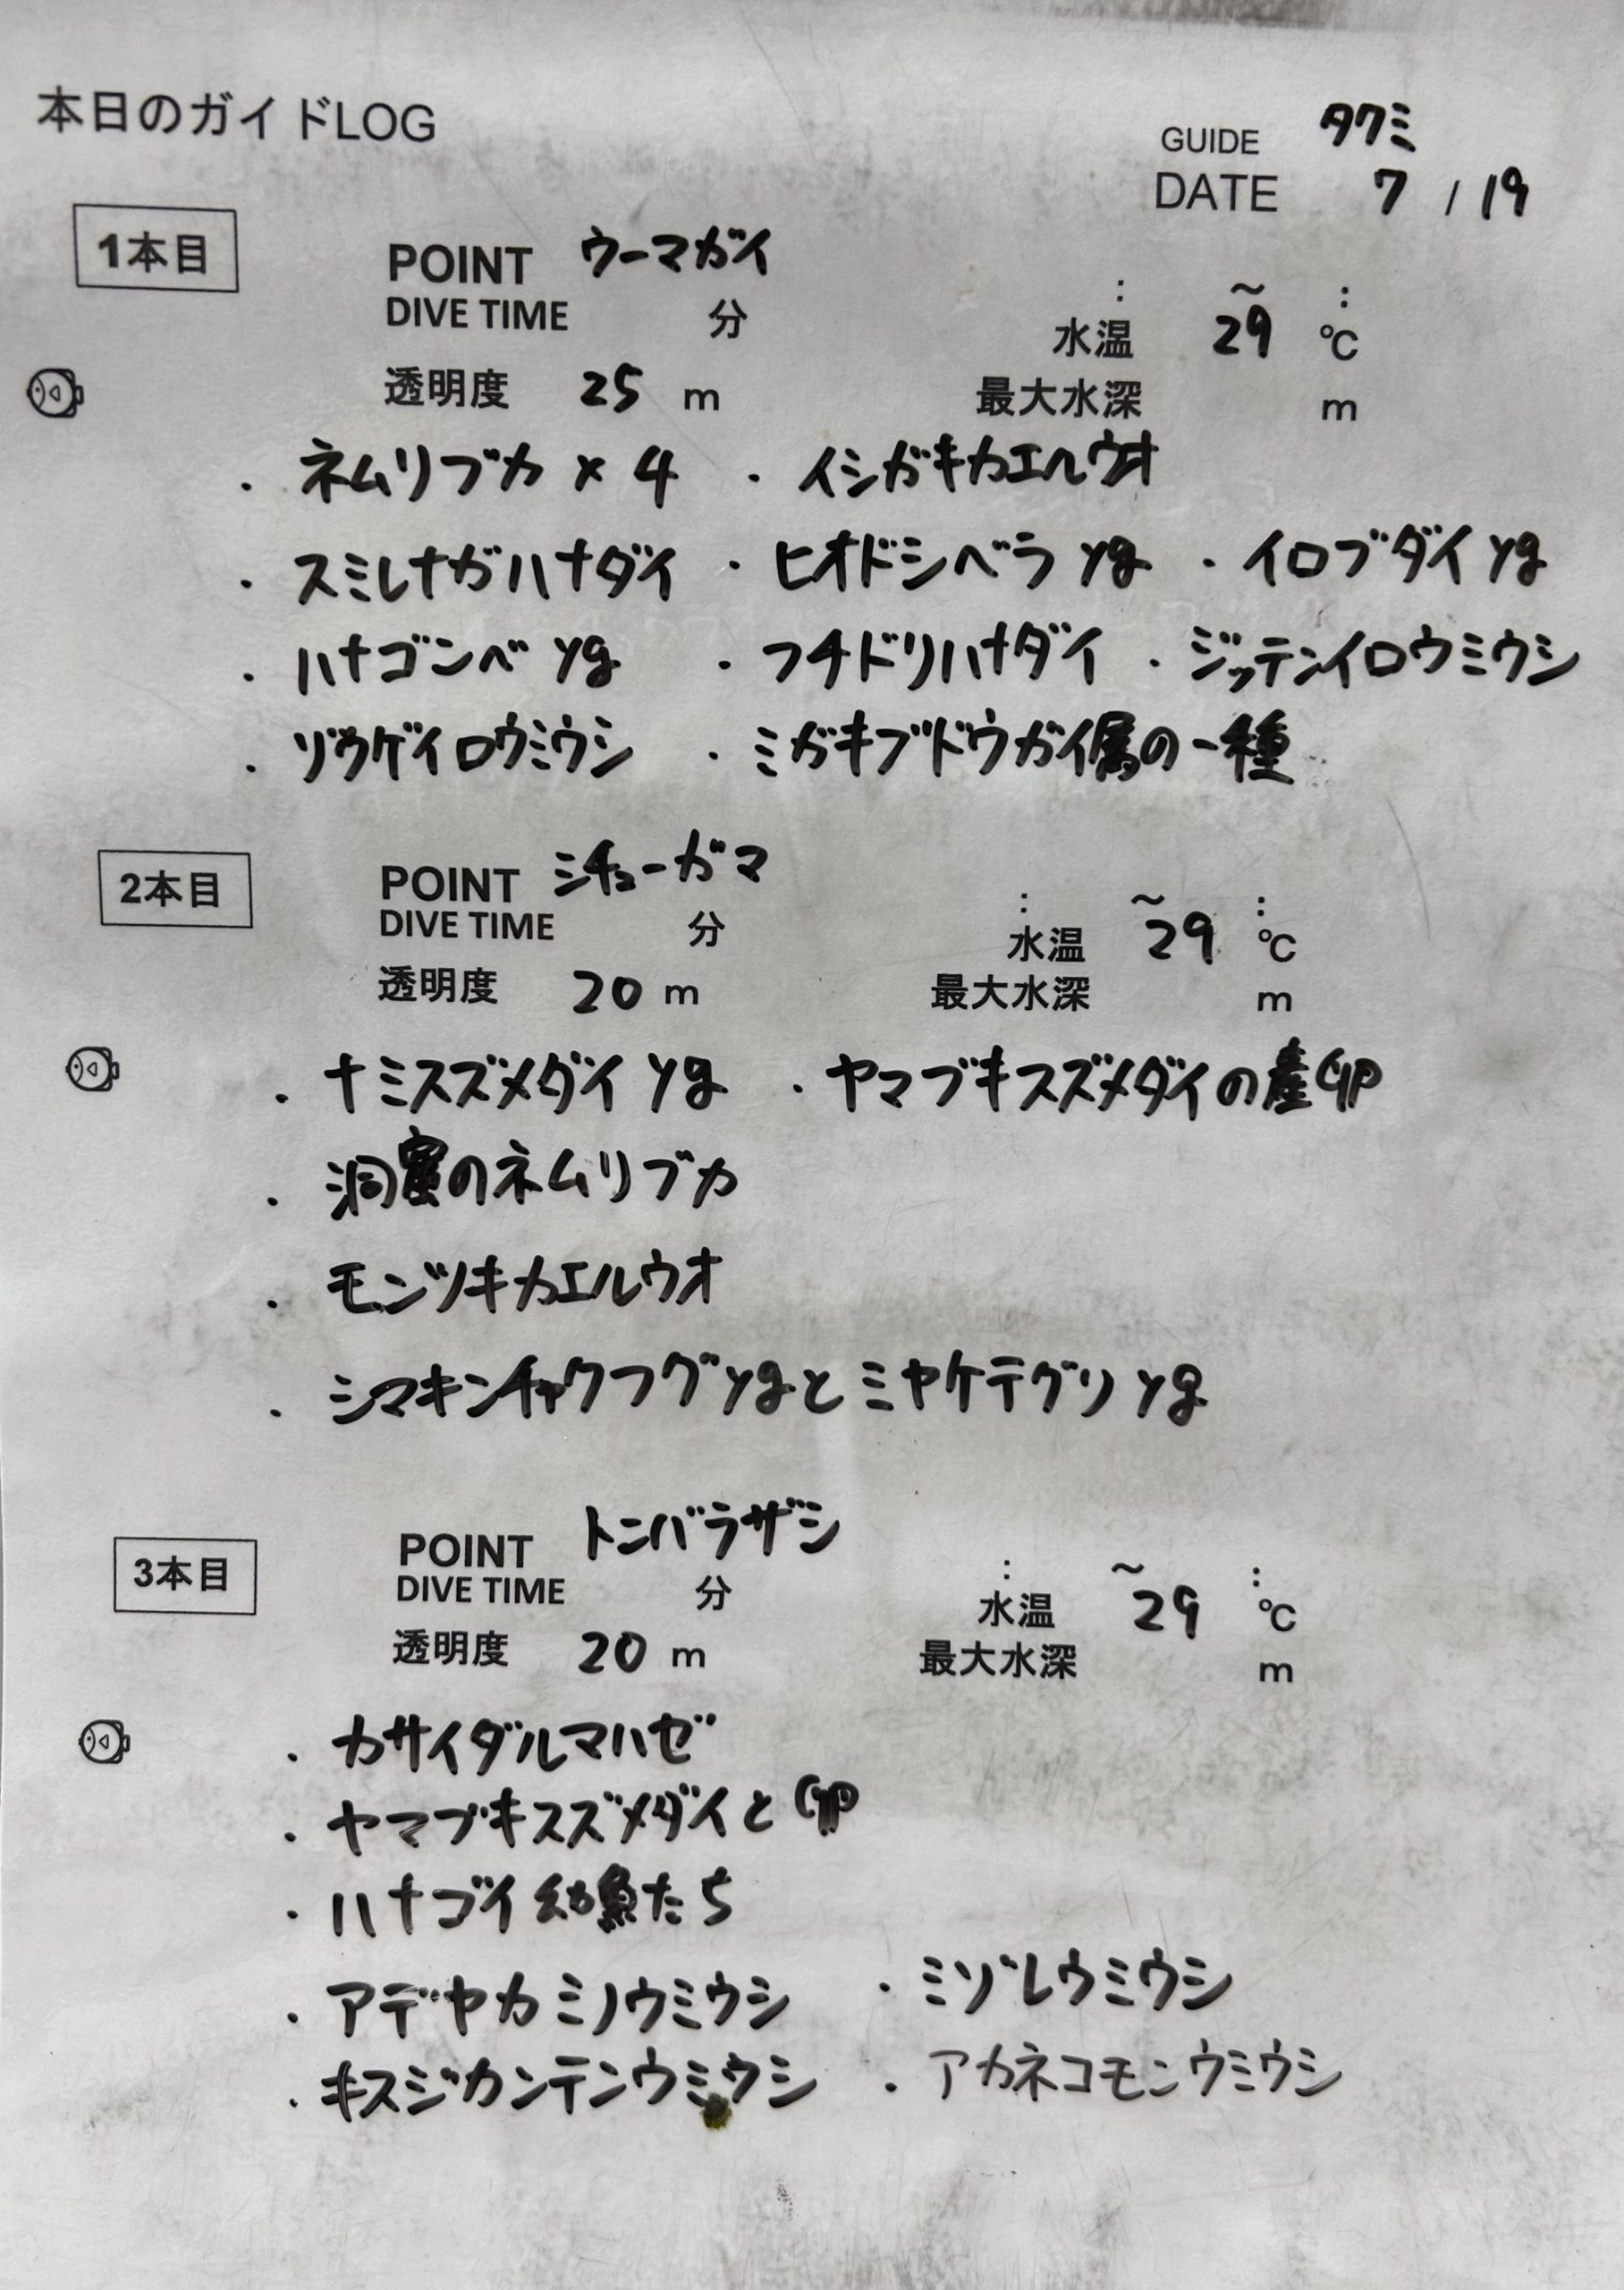 本日のガイドLOG
GUIDE タクミ
DATE 7 / 19
1本目
POINT ウーマガイ
: ～ :
DIVE TIME 分 水温 29 ℃
透明度 25 m 最大水深 m
・ネムリブカ×4 ・イシガキカエルウオ
・スミレナガハナダイ ・ヒオドシベラyg ・イロブダイyg
・ハナゴンベyg ・フチドリハナダイ ・ジッテンイロウミウシ
・ゾウゲイロウミウシ ・ミガキブドウガイ属の一種
2本目
POINT シチューガマ
: ～ :
DIVE TIME 分 水温 29 ℃
透明度 20 m 最大水深 m
・ナミスズメダイyg ・ヤマブキスズメダイの産卵
・洞窟のネムリブカ
・モンツキカエルウオ
・シマキンチャクフグygとミヤケテグリyg
3本目
POINT トンバラザシ
: ～ :
DIVE TIME 分 水温 29 ℃
透明度 20 m 最大水深 m
・カサイダルマハゼ
・ヤマブキスズメダイと卵
・ハナゴイ幼魚たち
・アデヤカミノウミウシ ・ミゾレウミウシ
・キスジカンテンウミウシ ・アカネコモンウミウシ